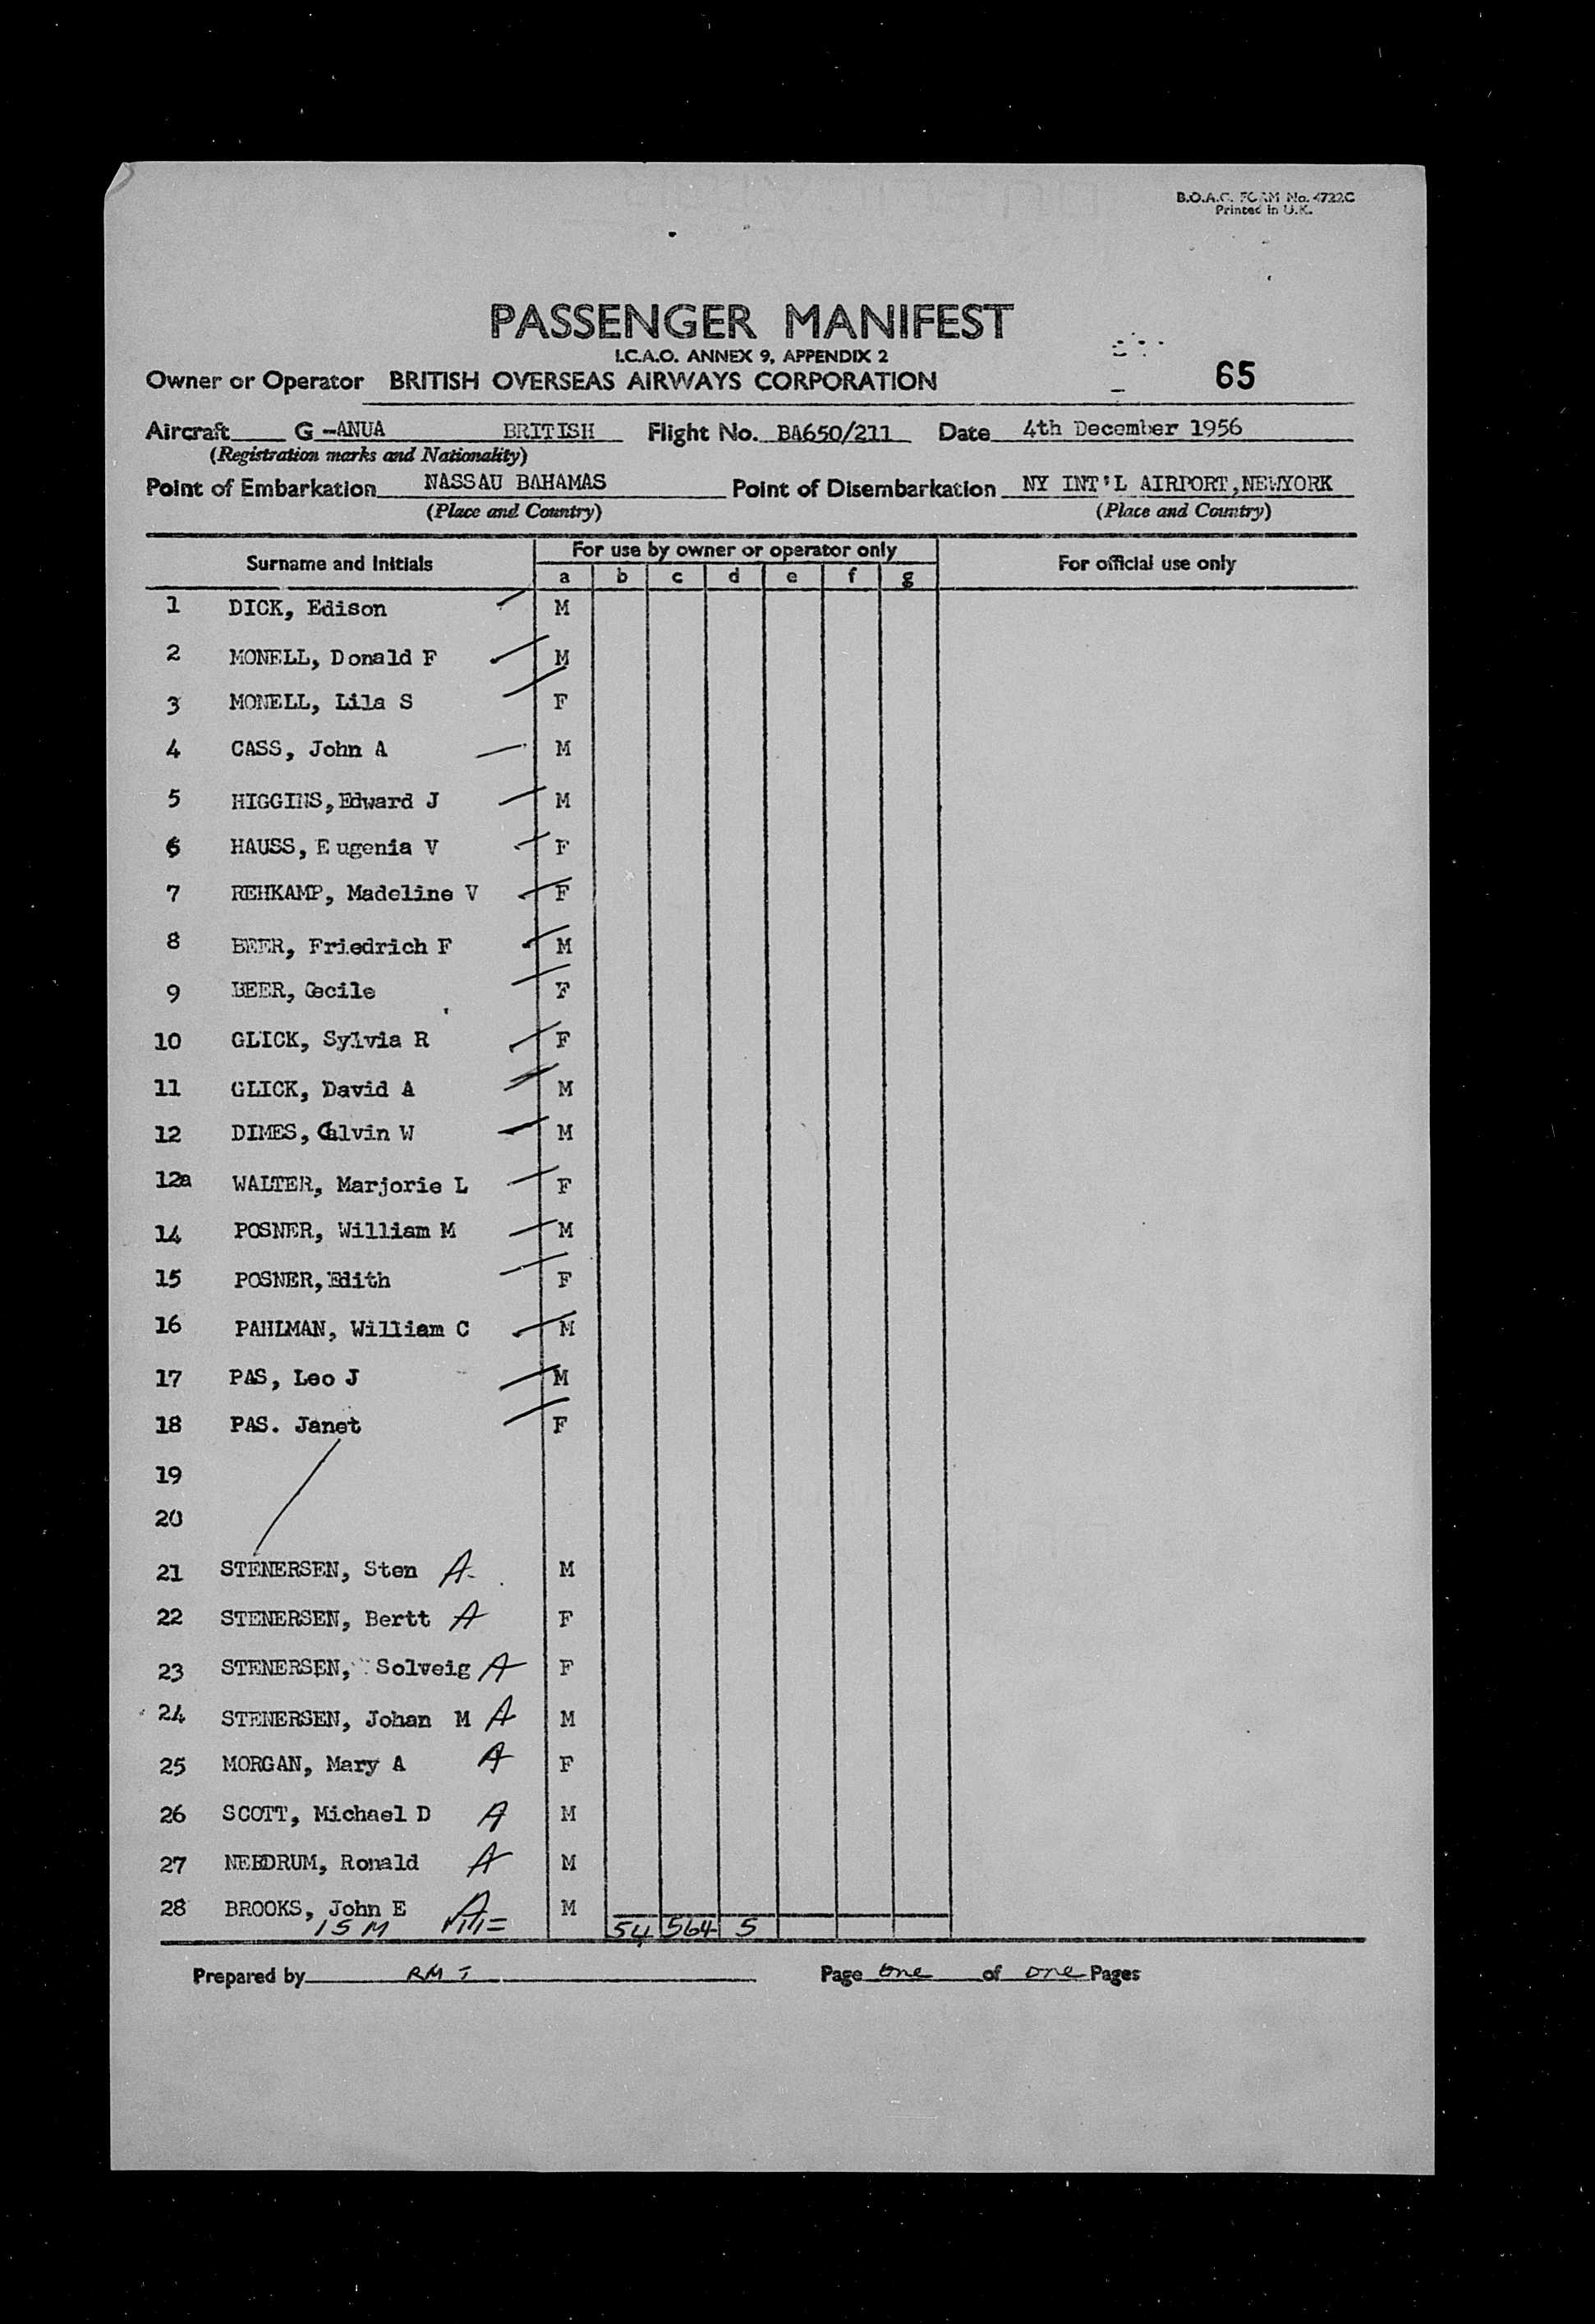 B.O.A.C. FORM No. 4722C
Printed in U.K.
PASSENGER MANIFEST
I.C.A.O. ANNEX 9, APPENDIX 2
Owner or Operator BRITISH OVERSEAS AIRWAYS CORPORATION 65
Aircraft G -ANUA BRITISH Flight No. BA650/211 Date 4th December 1956
(Registration marks and Nationality)
Point of Embarkation NASSAU BAHAMAS Point of Disembarkation NY INT'L AIRPORT,NEWYORK
(Place and Country) (Place and Country)
Surname and Initials For use by owner or operator only For official use only
a b c d e f g
1 DICK, Edison M
2 MONELL, Donald F M
3 MONELL, Lila S F
4 CASS, John A M
5 HIGGINS,Edward J M
6 HAUSS, E ugenia V F
7 REHKAMP, Madeline V F
8 BEER, Friedrich F M
9 BEER, Cecile F
10 GLICK, Sylvia R F
11 GLICK, David A M
12 DIMES, Calvin W M
12a WALTER, Marjorie L F
14 POSNER, William M M
15 POSNER,Edith F
16 PAHLMAN, William C M
17 PAS, Leo J M
18 PAS. Janet F
19
20
21 STENERSEN, Sten A M
22 STENERSEN, Bertt A F
23 STENERSEN, Solveig A F
24 STENERSEN, Johan M A M
25 MORGAN, Mary A A F
26 SCOTT, Michael D A M
27 NEEDRUM, Ronald A M
28 BROOKS, John E A M
15 M 54 564 5
Prepared by RM Page one of one Pages